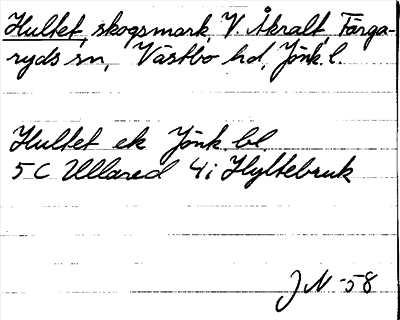 Hultet, skogsmark, V. Åkralt, Färga-
ryds sn, Västbo hd, Jönk. l.
Hultet ek Jönk. bl.
5 C Ullared 4 i Hyltebruk
J N -58